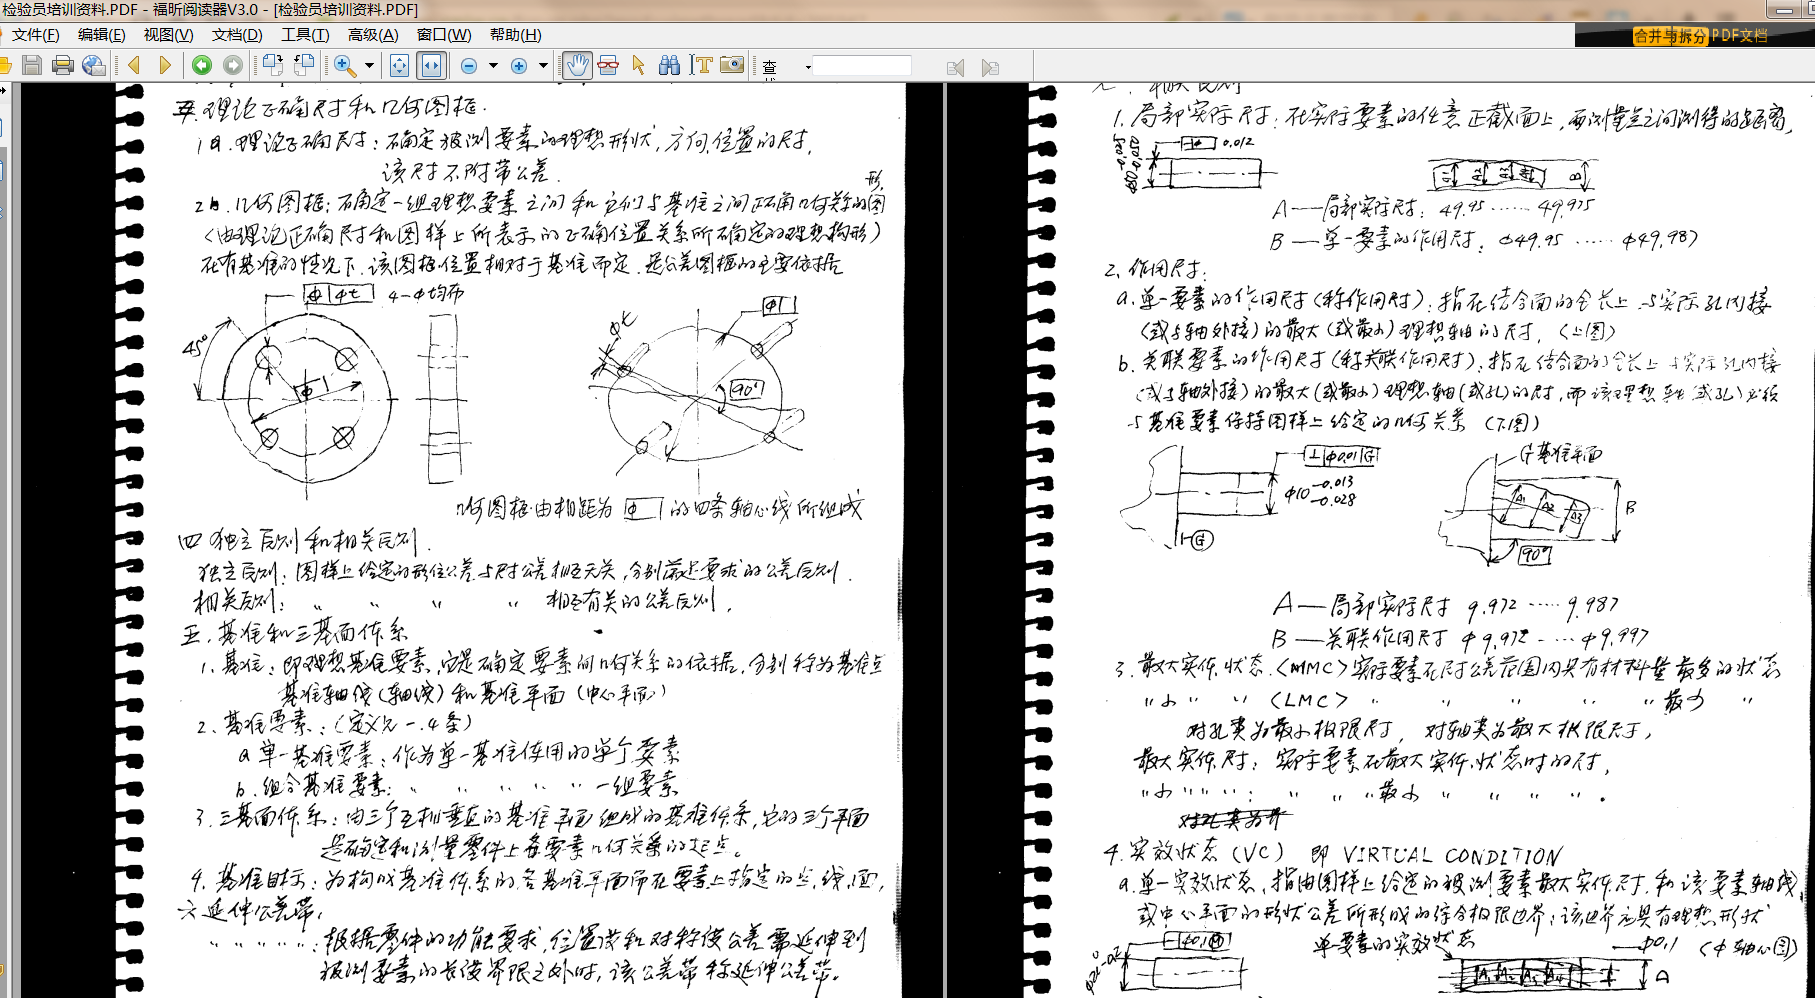 检验员培训资料.PDF - 福昕阅读器V3.0 - [检验员培训资料.PDF]
文件(F) 编辑(E) 视图(V) 文档(D) 工具(T) 高级(A) 窗口(W) 帮助(H)
合并与拆分PDF文档
理论正确尺寸和几何图框.
理论正确尺寸：确定被测要素的理想形状，方向，位置的尺寸，
该尺寸不附带公差.
几何图框：确定一组理想要素之间和它们与基准之间正确几何关系的图形
(由理论正确尺寸和图样上所表示的正确位置关系所确定的理想构形)
在有基准的情况下，该图框位置相对于基准而定，是公差图框的主要依据
4-Φ均布
45°
Φt
90°
几何图框由相距为 Φ 的四条轴心线所组成
四 独立原则和相关原则.
独立原则：图样上给定的形位公差与尺寸公差相互无关，分别满足要求的公差原则.
相关原则： 〃 〃 〃 〃 相互有关的公差原则.
五. 基准和三基面体系
1. 基准：即理想基准要素，它是确定要素间几何关系的依据，分别称为基准点
基准轴线(轴线)和基准平面(中心平面)
2. 基准要素：(定义见一.4条)
a 单一基准要素：作为单一基准使用的单个要素
b. 组合基准要素： 〃 〃 〃 〃 一组要素
3. 三基面体系：由三个互相垂直的基准平面组成的基准体系，它的三个平面
是确定和测量零件上各要素几何关系的起点。
4. 基准目标：为构成基准体系的各基准平面而在要素上指定的点，线，面，
六 延伸公差带，
〃 〃 〃 〃 〃：根据零件的功能要求，位置度和对称度公差需延伸到
被测要素的长度界限之外时，该公差带称延伸公差带。
1. 局部实际尺寸：在实际要素的任意正截面上，两测量点之间测得的距离，
0.012
A — 局部实际尺寸：49.95 …… 49.975
B — 单一要素的作用尺寸：Φ49.95 …… Φ49.987
2. 作用尺寸：
a. 单一要素的作用尺寸(称作用尺寸)：指在结合面的全长上 与实际孔内接
(或与轴外接)的最大(或最小)理想轴的尺寸，(上图)
b. 关联要素的作用尺寸(称关联作用尺寸)：指在结合面的全长上 与实际孔内接
(或与轴外接)的最大(或最小)理想轴(或孔)的尺寸，而该理想轴(或孔)必须
与基准要素保持图样上给定的几何关系 (下图)
⊥ Φ0.01 G
G基准平面
Φ10 -0.013 -0.028
A1 A2 A3
B
G
90°
A — 局部实际尺寸 9.972 …… 9.987
B — 关联作用尺寸 Φ9.972 …… Φ9.997
3. 最大实体状态<MMC>实际要素在尺寸公差范围内具有材料量最多的状态
〃小〃 〃 <LMC> 〃 〃 〃 〃 〃最少 〃
对孔类为最小极限尺寸，对轴类为最大极限尺寸，
最大实体尺寸：实际要素在最大实体状态时的尺寸，
〃小〃〃〃： 〃 〃 〃最小 〃 〃 〃 〃.
4. 实效状态(VC) 即 VIRTUAL CONDITION
a. 单一实效状态，指由图样上给定的被测要素最大实体尺寸，和该要素轴线
或中心平面的形状公差所形成的综合极限边界；该边界应具有理想形状
单一要素的实效状态
Φ0.1 (Φ轴心圆)
A